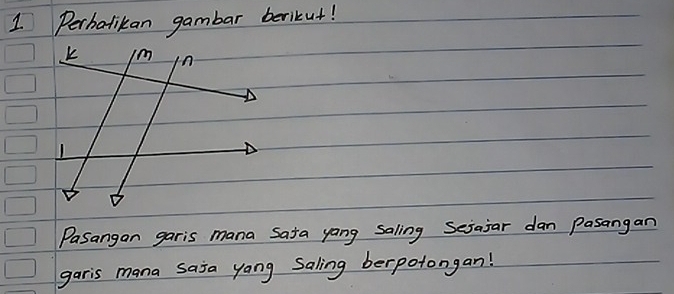 1. Perhatikan gambar berikut!
k m n
l
Pasangan garis mana saja yang saling sejajar dan pasangan
garis mana saja yang saling berpotongan!